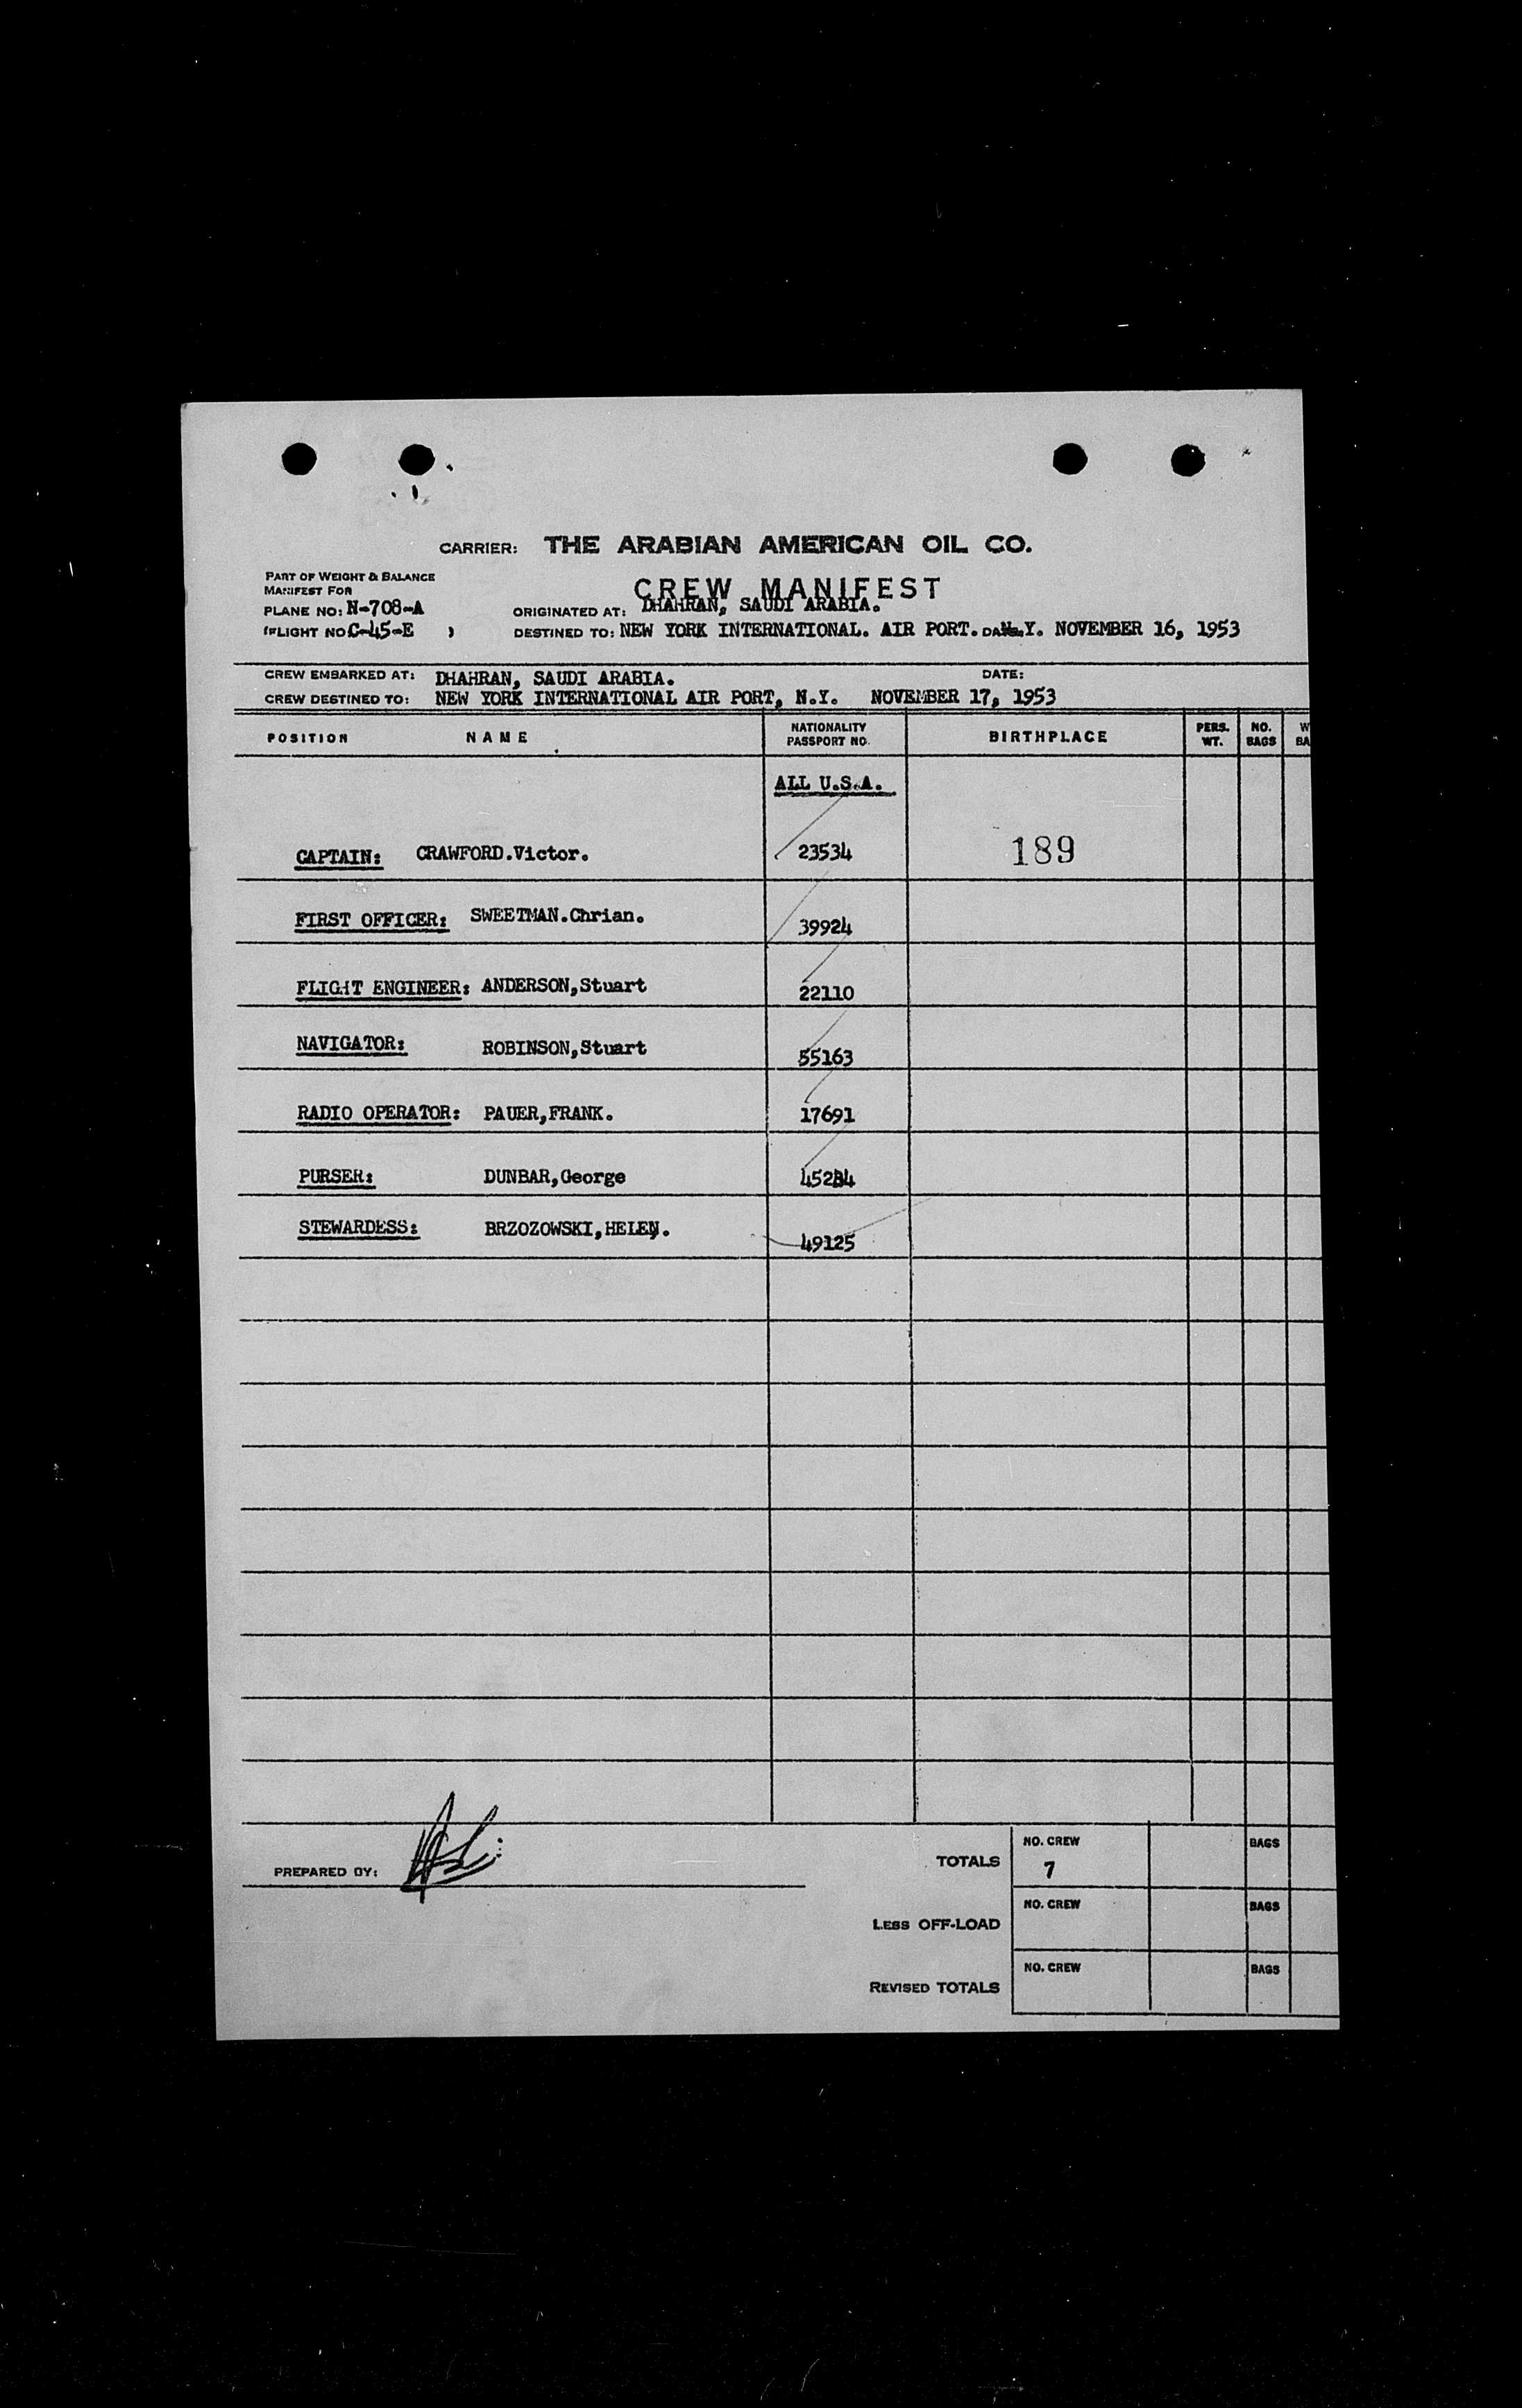 CARRIER: THE ARABIAN AMERICAN OIL CO.
PART OF WEIGHT & BALANCE
MANIFEST FOR
CREW MANIFEST
PLANE NO: N-708-A ORIGINATED AT: DHAHRAN, SAUDI ARABIA.
(FLIGHT NO C-45-E ) DESTINED TO: NEW YORK INTERNATIONAL. AIR PORT. N.Y. NOVEMBER 16, 1953
CREW EMBARKED AT: DHAHRAN, SAUDI ARABIA. DATE:
CREW DESTINED TO: NEW YORK INTERNATIONAL AIR PORT, N.Y. NOVEMBER 17, 1953
POSITION NAME NATIONALITY PASSPORT NO. BIRTHPLACE PERS. WT. NO. BAGS W BA
ALL U.S.A.
CAPTAIN: CRAWFORD.Victor. 23534 189
FIRST OFFICER: SWEETMAN.Chrian. 39924
FLIGHT ENGINEER: ANDERSON,Stuart 22110
NAVIGATOR: ROBINSON,Stuart 55163
RADIO OPERATOR: PAUER,FRANK. 17691
PURSER: DUNBAR,George
STEWARDESS: BRZOZOWSKI,HELEN. 49125
NO. CREW BAGS
PREPARED BY: TOTALS 7
NO. CREW BAGS
LESS OFF-LOAD
NO. CREW BAGS
REVISED TOTALS